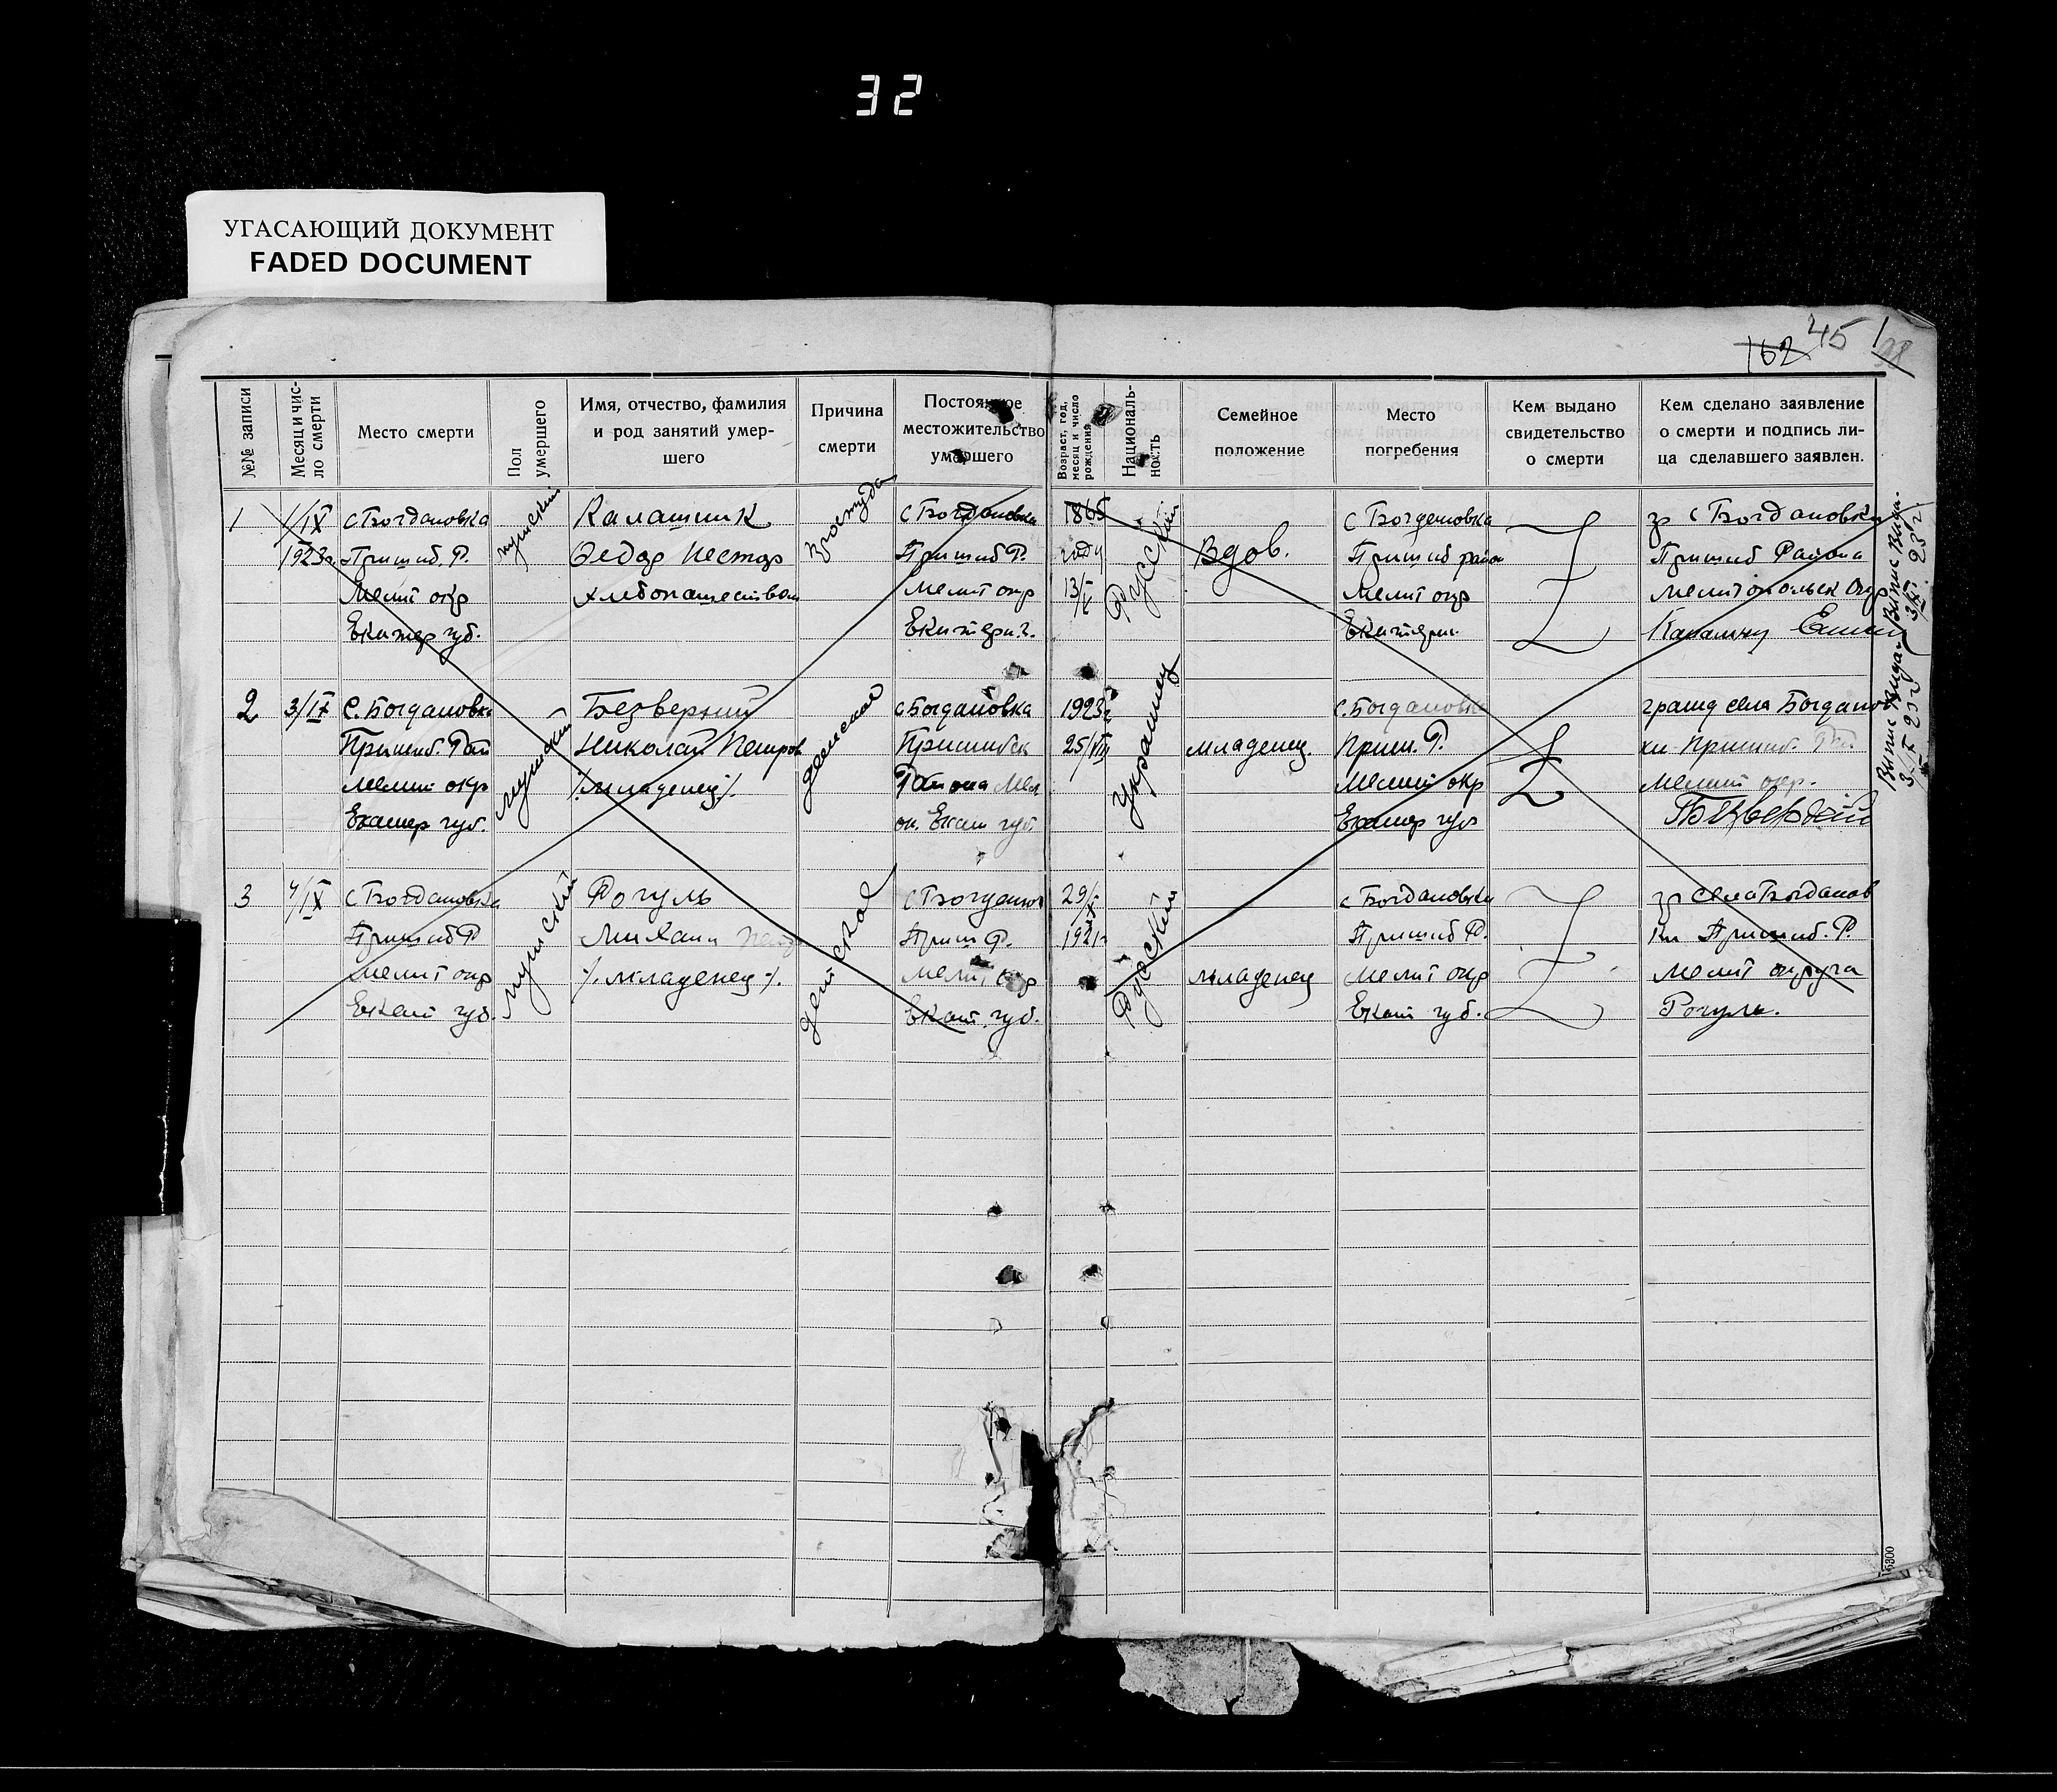 32
УГАСАЮЩИЙ ДОКУМЕНТ
FADED DOCUMENT
162 45
№№ записи
Месяц и чис-
ло смерти
Место смерти
Пол
умершего
Имя, отчество, фамилия
и род занятий умер-
шего
Причина
смерти
Постоянное
местожительство
умершего
Возраст, год,
месяц и число
рождения
Националь-
ность
Семейное
положение
Место
погребения
Кем выдано
свидетельство
о смерти
Кем сделано заявление
о смерти и подпись ли-
ца сделавшего заявлен.
1
1/IX
1923г.
с Богдановка
Пришиб. Р.
Мелит окр
Екатер губ.
мужской
Калашник
Федор Нестор
хлебопашеством
простуда
с Богдановка
Пришиб Р.
Мелит окр
Екатерин.г.
1865
году
13/V
Русский
Вдов.
с Богдановка
Пришиб район
Мелит окр
Екатерин.
гр с Богдановки
Пришиб Района
Мелитопольск Окр
2
3/IX
с. Богдановка
Пришиб. Рай
Мелит окр
Екатер губ.
мужской
Безверхий
Николай Петров
/младенец/.
детская
с Богдановка
Пришибск
Района Мел
ок. Екат губ
1923г
25/VIII
Украинец
младенец.
с. Богдановка
Приш. Р.
Мелит окр
Екатер губ
гражд села Богданов
ки Пришиб. Рай
Мелит окр.
3
4/IX
с Богдановка
Пришиб Р
Мелит окр
Екат губ.
мужской
Рогуль
Михаил
/. младенец /.
детская
с Богданов
Приш Р.
Мелит окр
Екат. губ.
29/X
1921г
Русский
младенец
с Богдановка
Пришиб Р.
Мелит окр
Екат губ.
гр села Богданов
ки Пришиб. Р.
Мелит округа
Рогуль.
5300